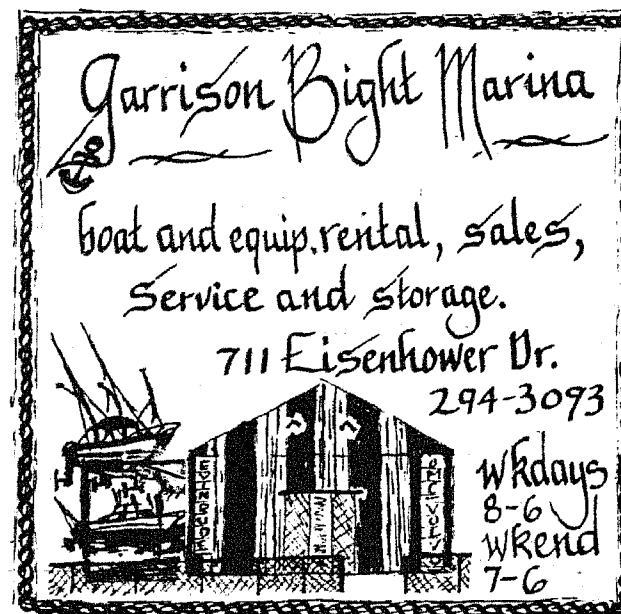 Garrison Bight Marina
boat and equip. rental, sales,
service and storage.
711 Eisenhower Dr.
294-3093
wkdays
8-6
wkend
7-6
EVINRUDE